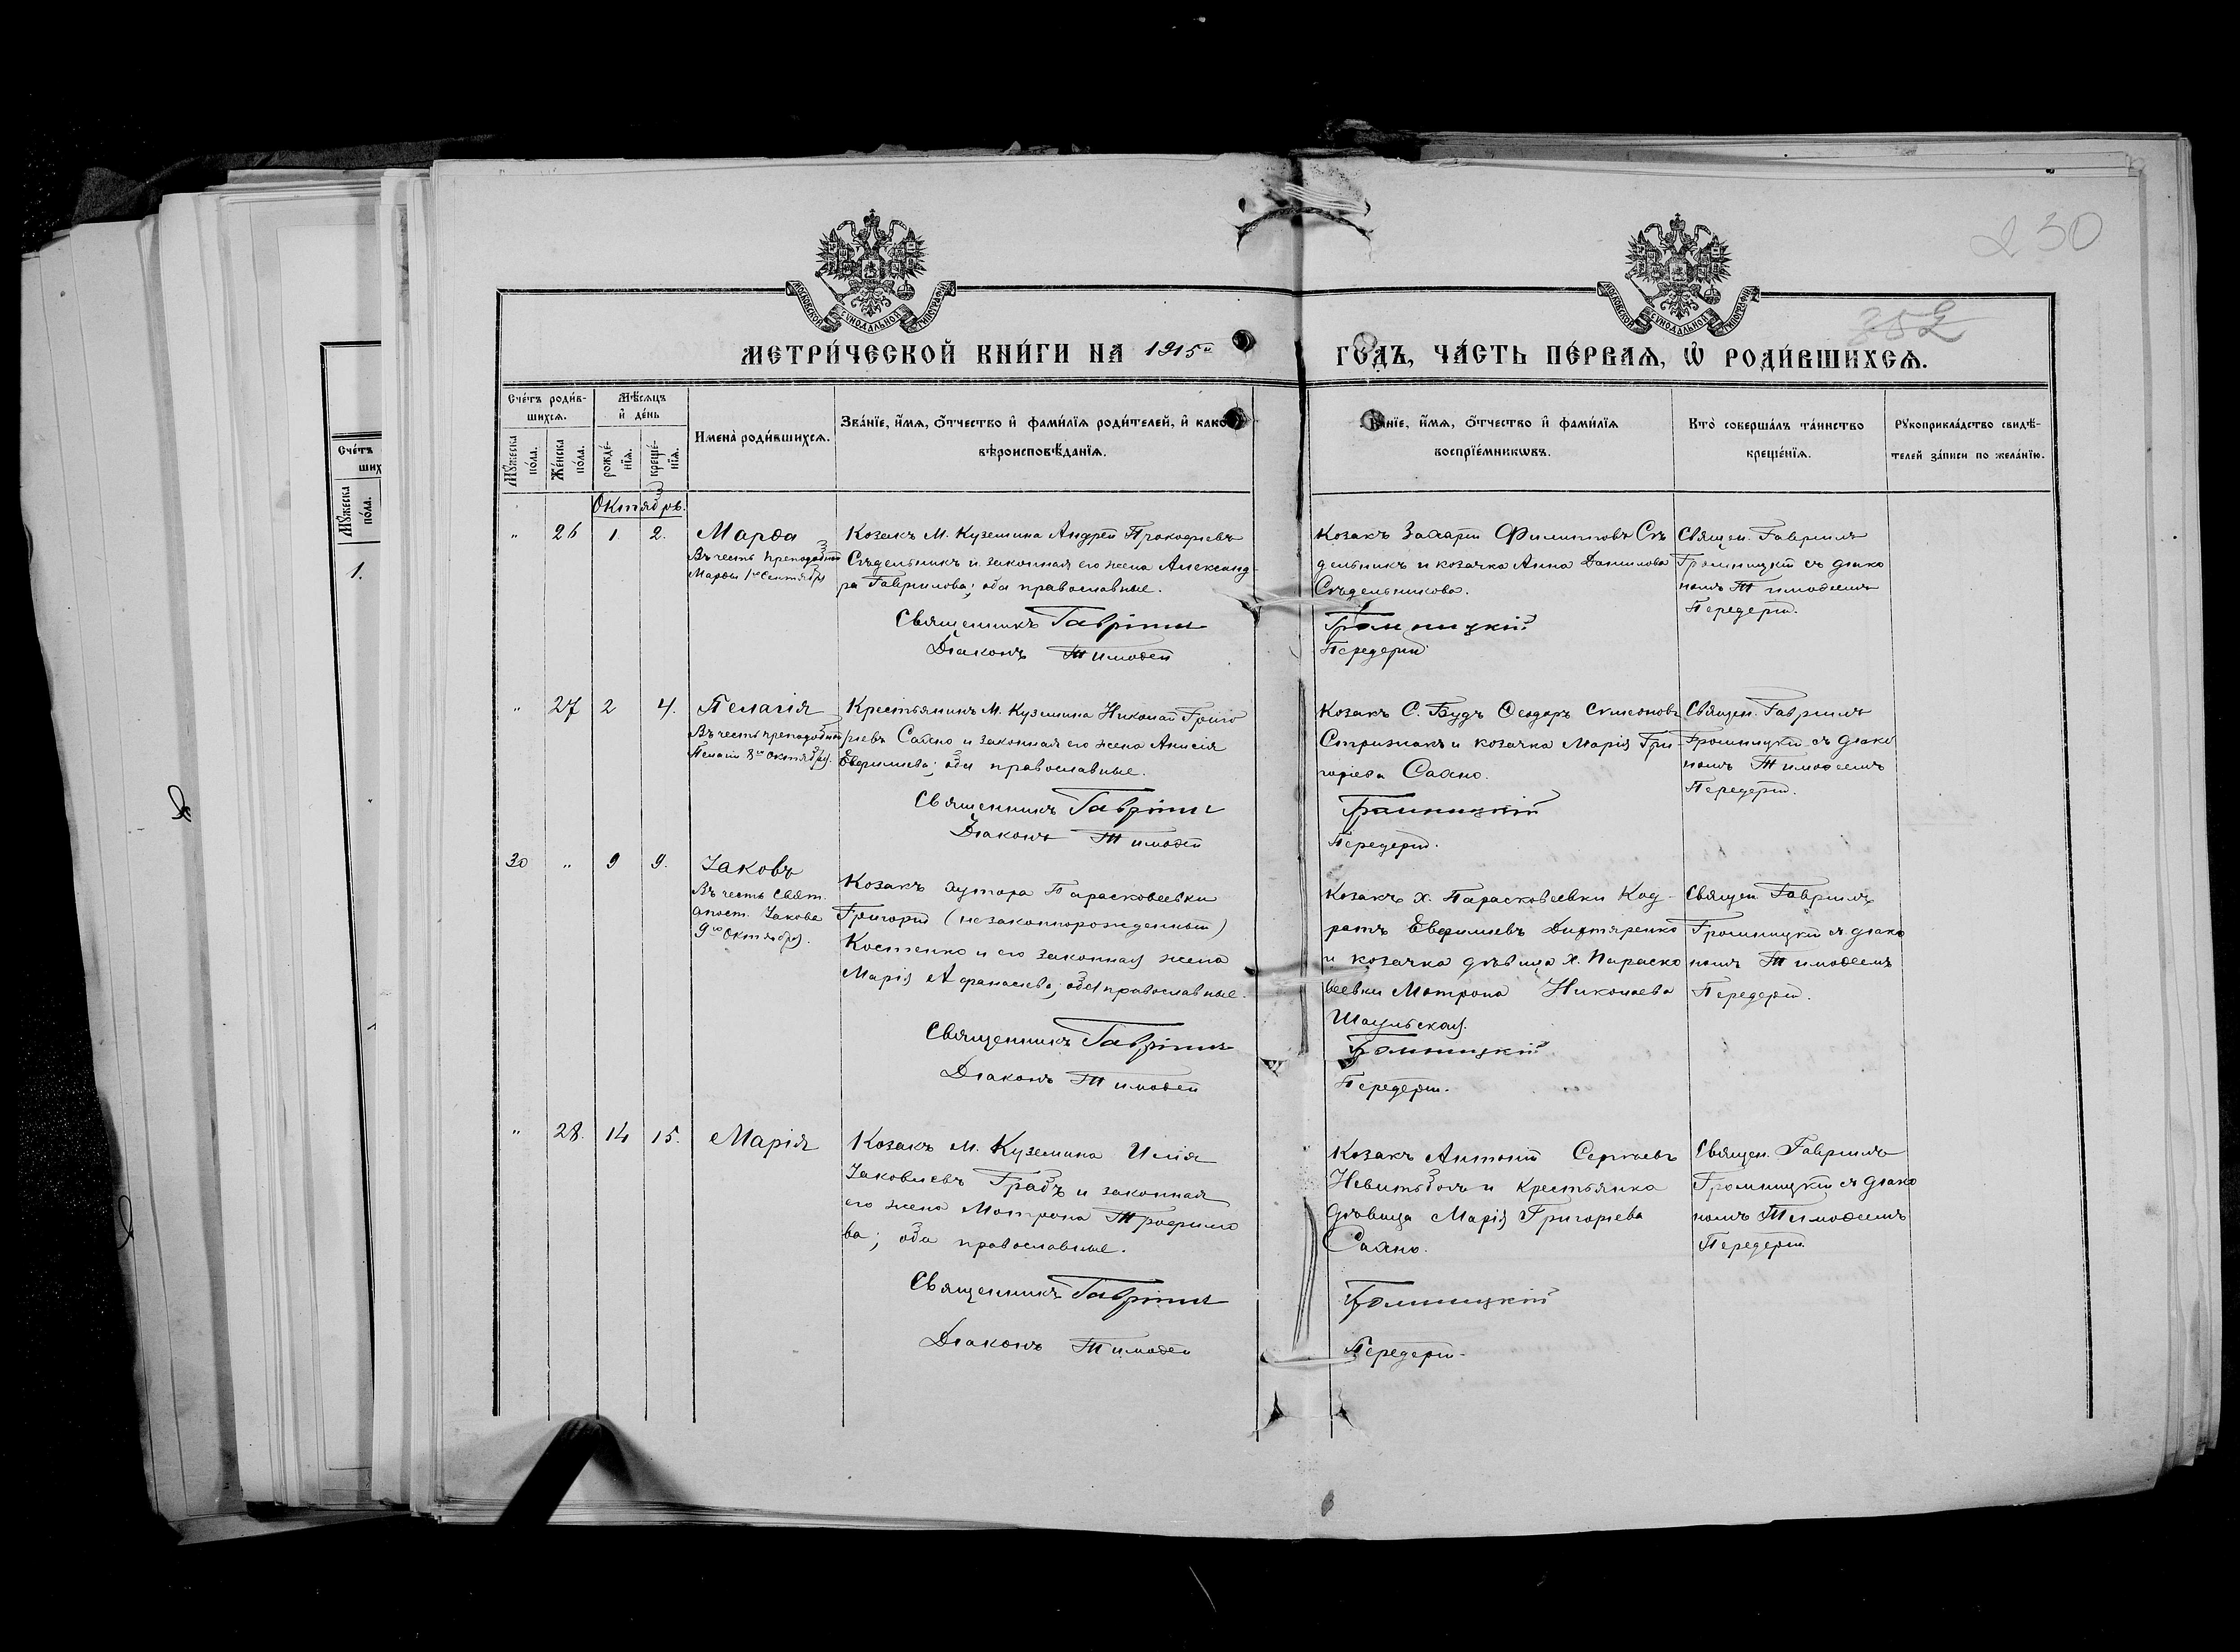 230
252
МЕТРИ́ЧЕСКОЙ КНИ́ГИ НА 1915й ГО́ДЪ, ЧА́СТЬ ПЕ́РВАЯ, Ѡ РОДИ́ВШИХСЯ.
МОСКОВСКОЙ СѴНОДАЛЬНОЙ ТИПОГРАФІИ
МОСКОВСКОЙ СѴНОДАЛЬНОЙ ТИПОГРАФІИ
Сче́тъ роди́в-
шихся.
Мѣ́сяцъ
и де́нь
Мꙋ́жеска по́ла.
Же́нска по́ла.
рожде́-
нія.
креще́-
нія.
Имена̀ роди́вшихся.
Зва́ніе, и́мя, ѻ́тчество и фами́лія роди́телей, и како
вѣроисповѣ́данія.
ніе, и́мя, ѻ́тчество и фами́лія
воспріе́мникωвъ.
Кто̀ соверша́лъ та́инство
креще́нія.
Рꙋкоприкла́дство свидѣ́-
телей за́писи по жела́нію.
Сче́тъ
ших
Мꙋ́жеска
по́ла.
1.
Октябрь.
" 26 1. 2. Марѳа
Въ честь преподобной
Марѳы 1го Сентября
Козакъ М. Куземина Андрей Прокофіевъ
Сѣдельникъ и законная его жена Александ-
ра Гаврилова; оба православные.
Священникъ Гавріилъ
Діаконъ Тимоѳей
Козакъ Захарій Филипповъ Сѣ
дельникъ и козачка Анна Данилова
Сѣдельникова.
Громницкій
Передерій
Священ. Гавріилъ
Громницкій съ діако
номъ Тимоѳеемъ
Передерій.
" 27 2 4. Пелагія
Въ честь преподобной
Пелагіи 8го Октября.
Крестьянинъ М. Куземина Николай Григо
рьевъ Сахно и законная его жена Анисія
Евфиміева; оба православные.
Священникъ Гавріилъ
Діаконъ Тимоѳей
Козакъ С. Будъ Ѳеодоръ Симеоновъ
Стрижакъ и козачка Марія Гри-
горіева Сахно.
Громницкій
Передерій.
Священ. Гавріилъ
Громницкій съ діако
номъ Тимоѳеемъ
Передерій.
30 " 9 9. Іаковъ
Въ честь Свят.
апост. Іакова
9го Октября.
Козакъ хутора Парасковеевки
Григорій (незаконнорожденный)
Костенко и его законная жена
Марія Афанасіева; оба православные.
Священникъ Гавріилъ
Діаконъ Тимоѳей
Козакъ х. Парасковеевки Код-
ратъ Евфиміевъ Дихтяренко
и козачка дѣвица х. Параско
веевки Мотрона Николаева
Шаульская.
Громницкій
Передерій.
Священ Гавріилъ
Громницкій съ діако
номъ Тимоѳеемъ
Передерій.
" 28. 14 15. Марія
Козакъ М. Куземина Илія
Іаковлевъ Грабъ и законная
его жена Мотрона Трофимо
ва; оба православные.
Священникъ Гавріилъ
Діаконъ Тимоѳей
Козакъ Антоній Сергѣевъ
и крестьянка
дѣвица Марія Григорьева
Сахно.
Громницкій
Передерій.
Священ. Гавріилъ
Громницкій съ діако
номъ Тимоѳеемъ
Передерій.